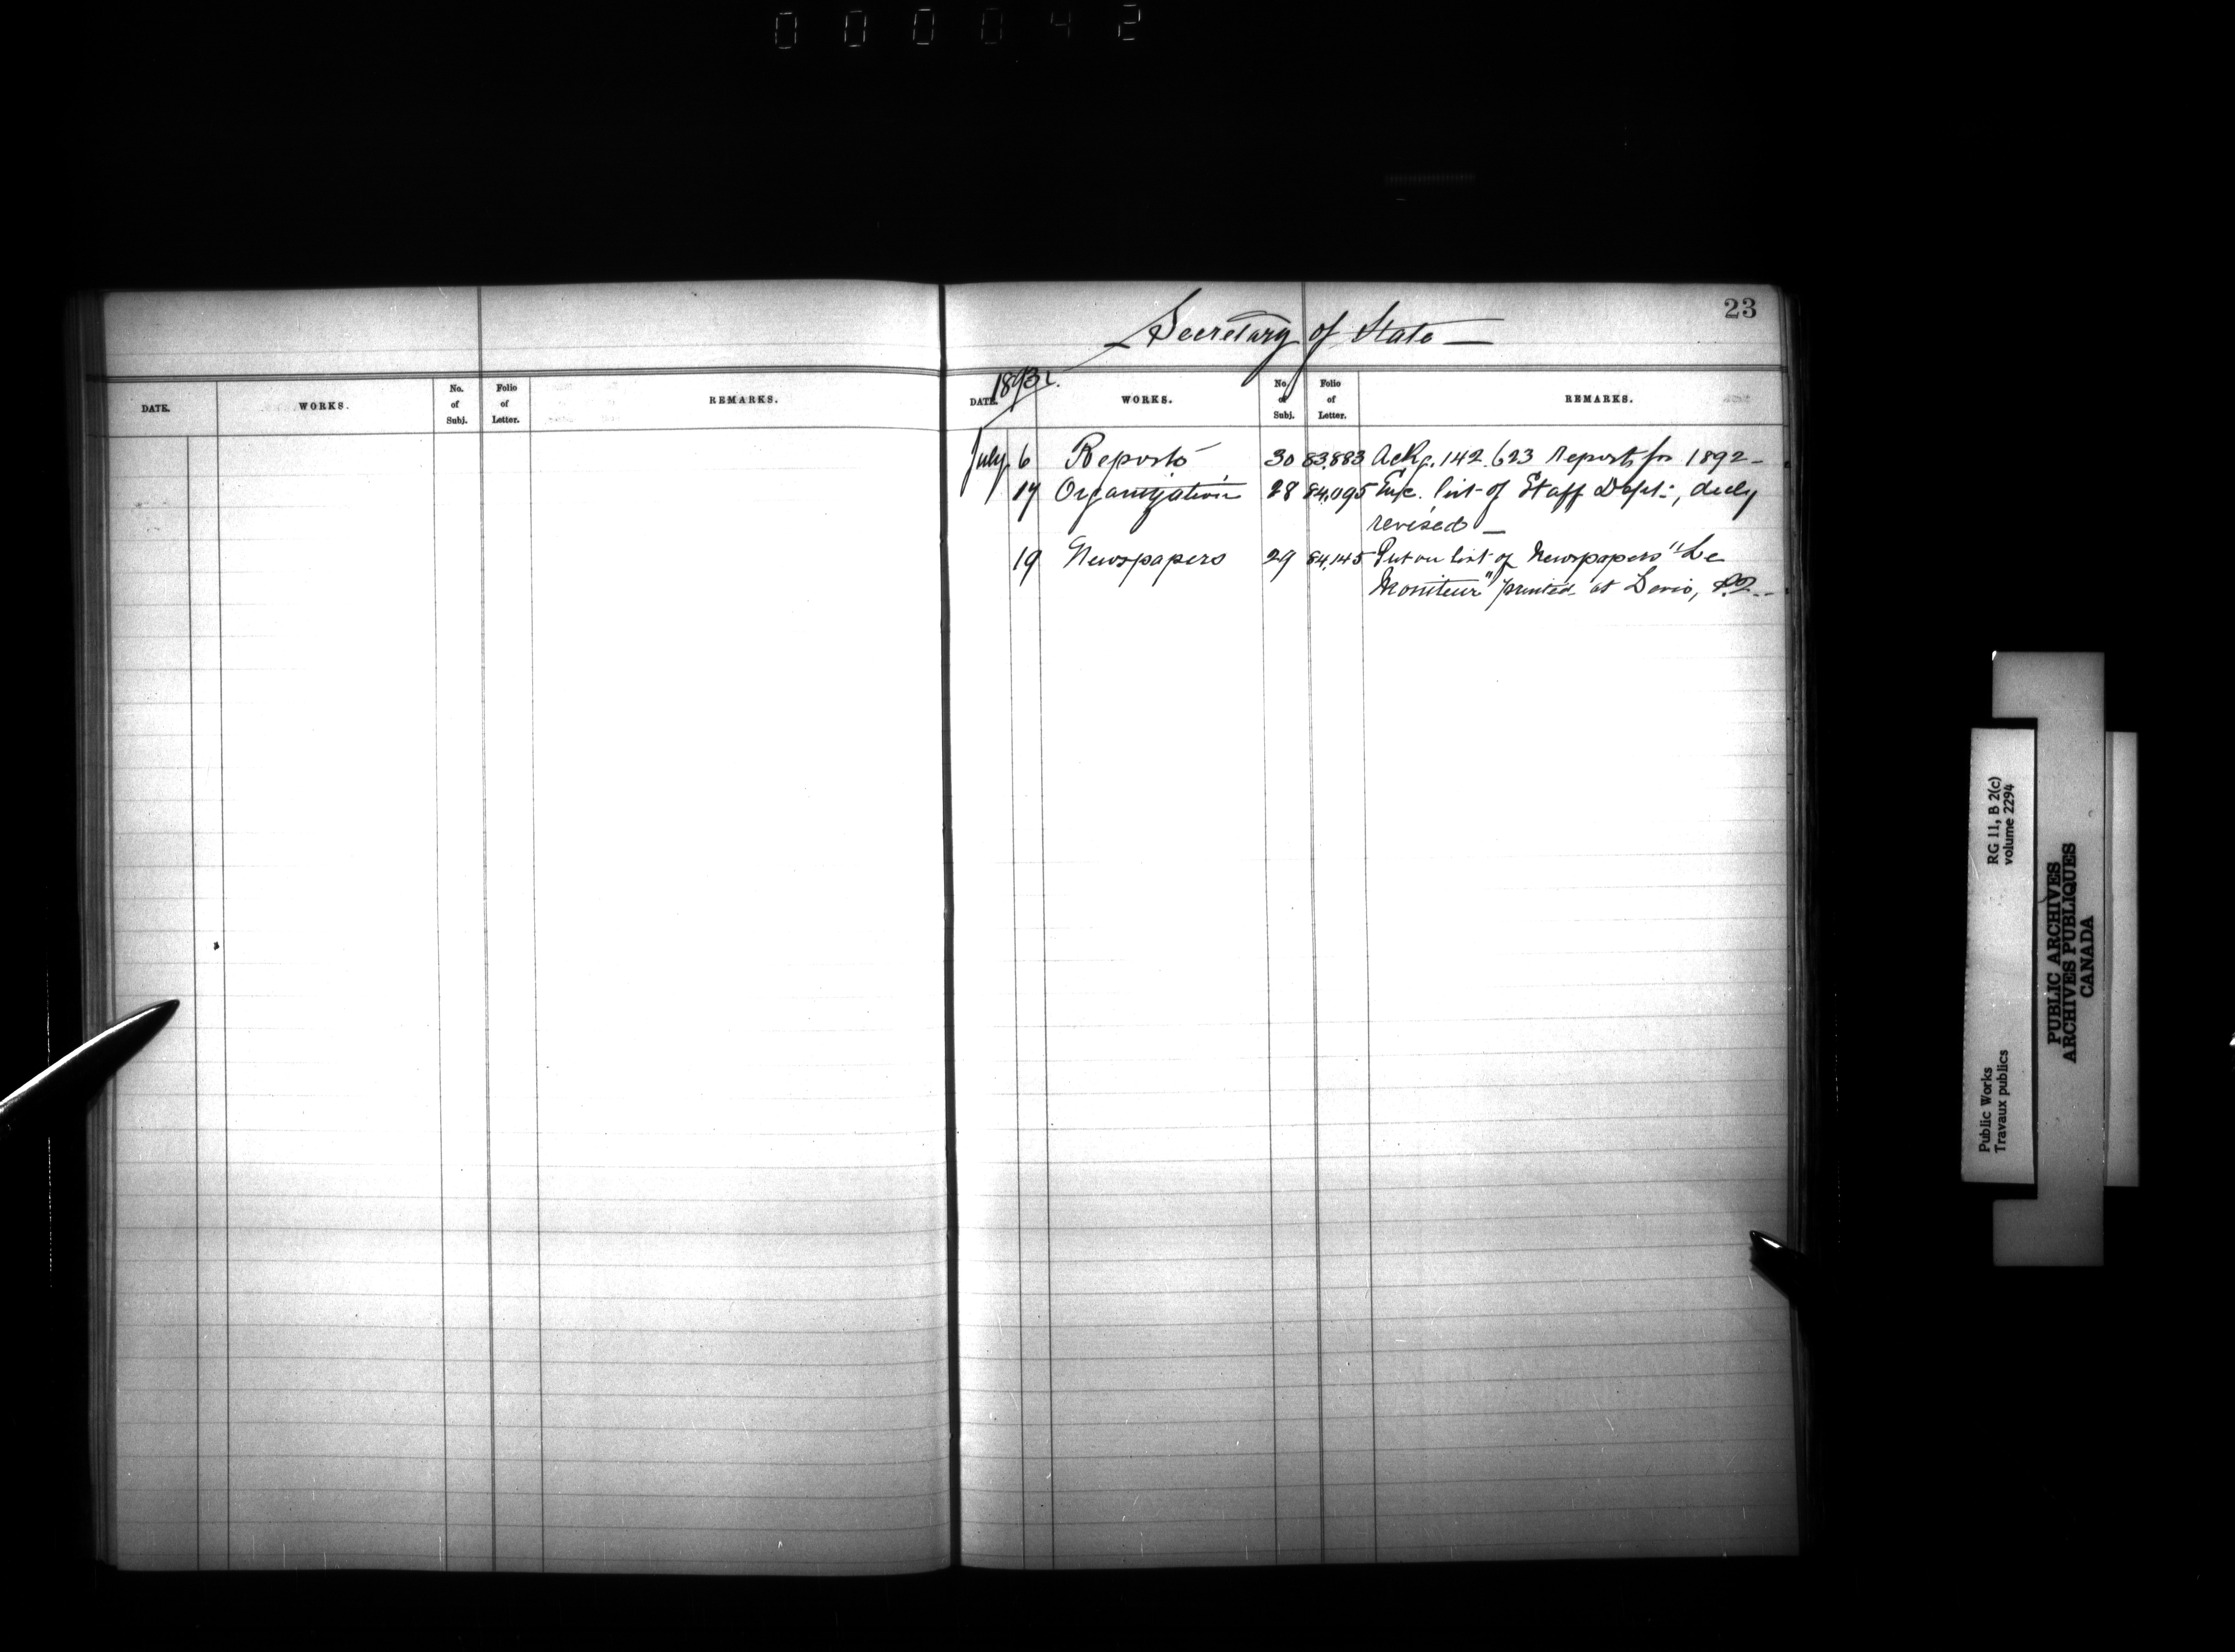 000042
23
Secretary of State
1893.
DATE. WORKS. No. of Subj. Folio of Letter. REMARKS.
DATE. WORKS. No. of Subj. Folio of Letter. REMARKS.
July 6 Reports 30 83,883 Ackg. 142.623 reports for 1892
17 Organization 28 84,095 Enc. list of Staff Dept:, duly
revised
19 Newspapers 29 84,145 Put on list of Newspapers "Le
Moniteur" printed at Levis, P.Q.
Public Works RG 11, B 2(c)
Travaux publics volume 2294
PUBLIC ARCHIVES
ARCHIVES PUBLIQUES
CANADA